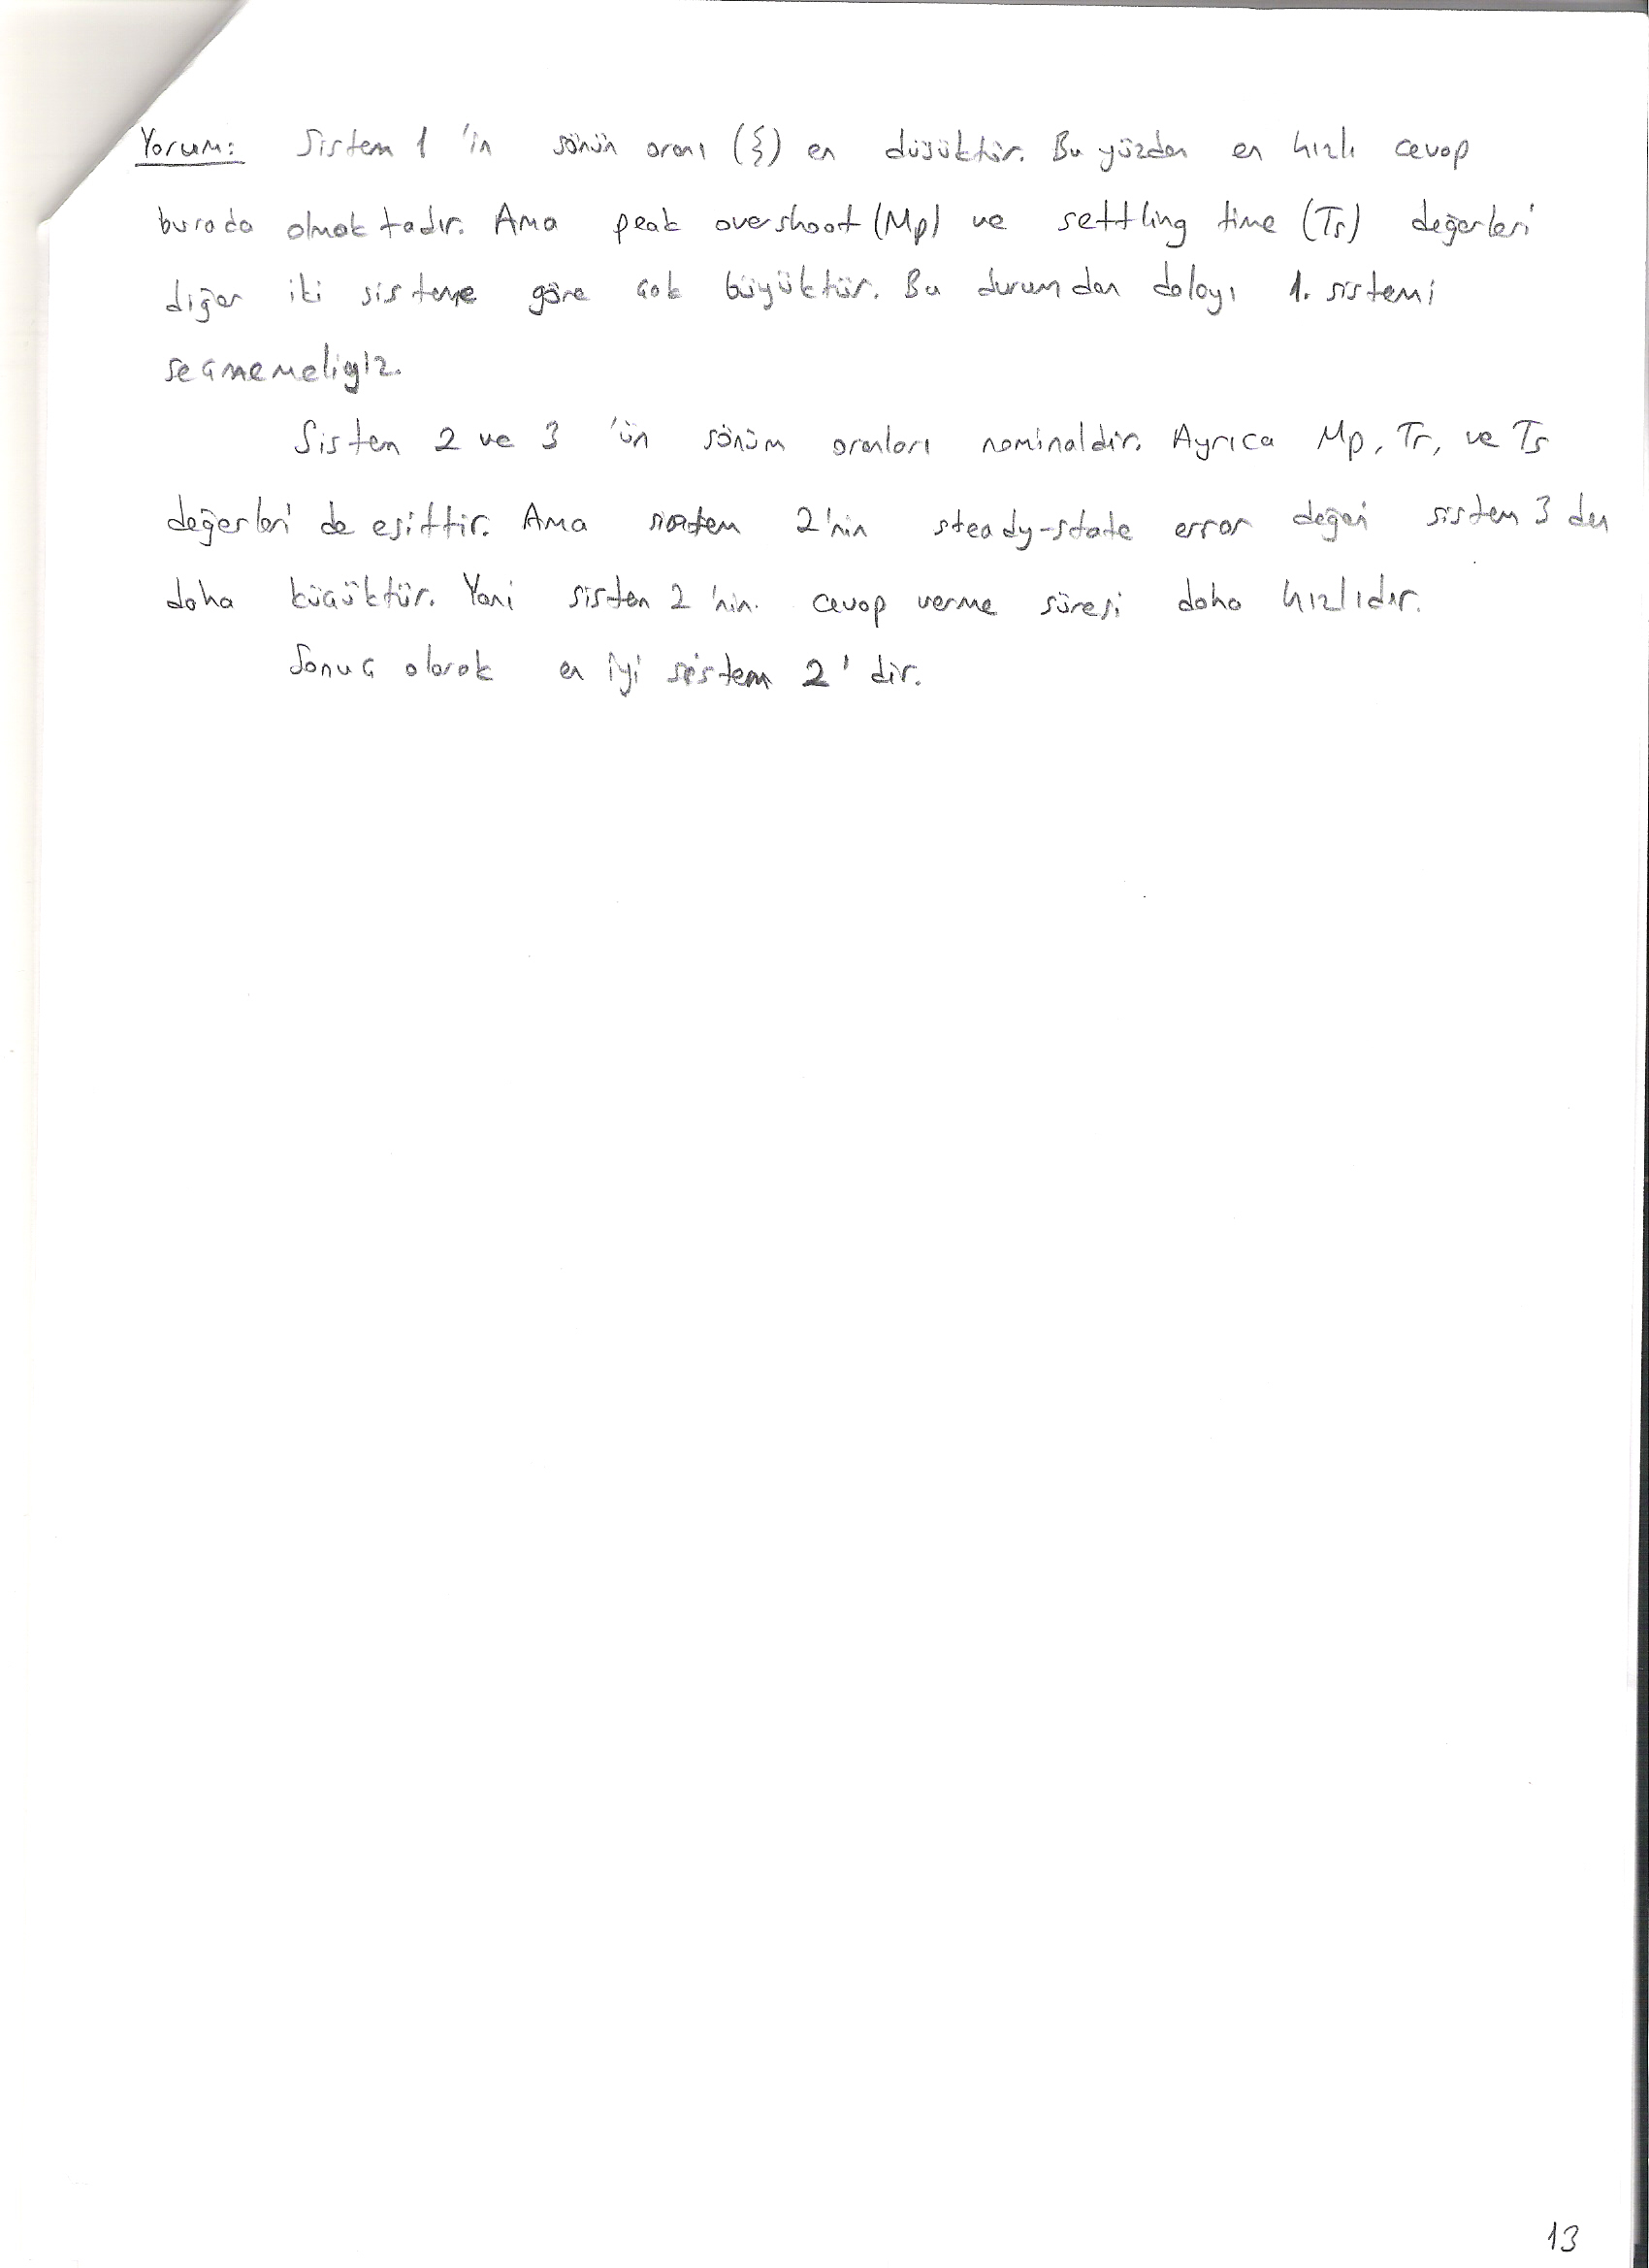 Yorum: Sistem 1 'in sönün oranı (ξ) en düşüktür. Bu yüzden en hızlı cevap
burada olmaktadır. Ama peak overshoot (Mp) ve settling time (Ts) değerleri
diğer iki sisteme göre çok büyüktür. Bu durumdan dolayı 1. sistemi
seçmemeliyiz.
Sistem 2 ve 3 'ün sönüm oranları nominaldir. Ayrıca Mp, Tr, ve Ts
değerleri de eşittir. Ama sistem 2'nin steady-state error değeri sistem 3 den
daha küçüktür. Yani sistem 2 'nin. cevap verme süresi daha hızlıdır.
Sonuç olarak en iyi sistem 2' dir.
13